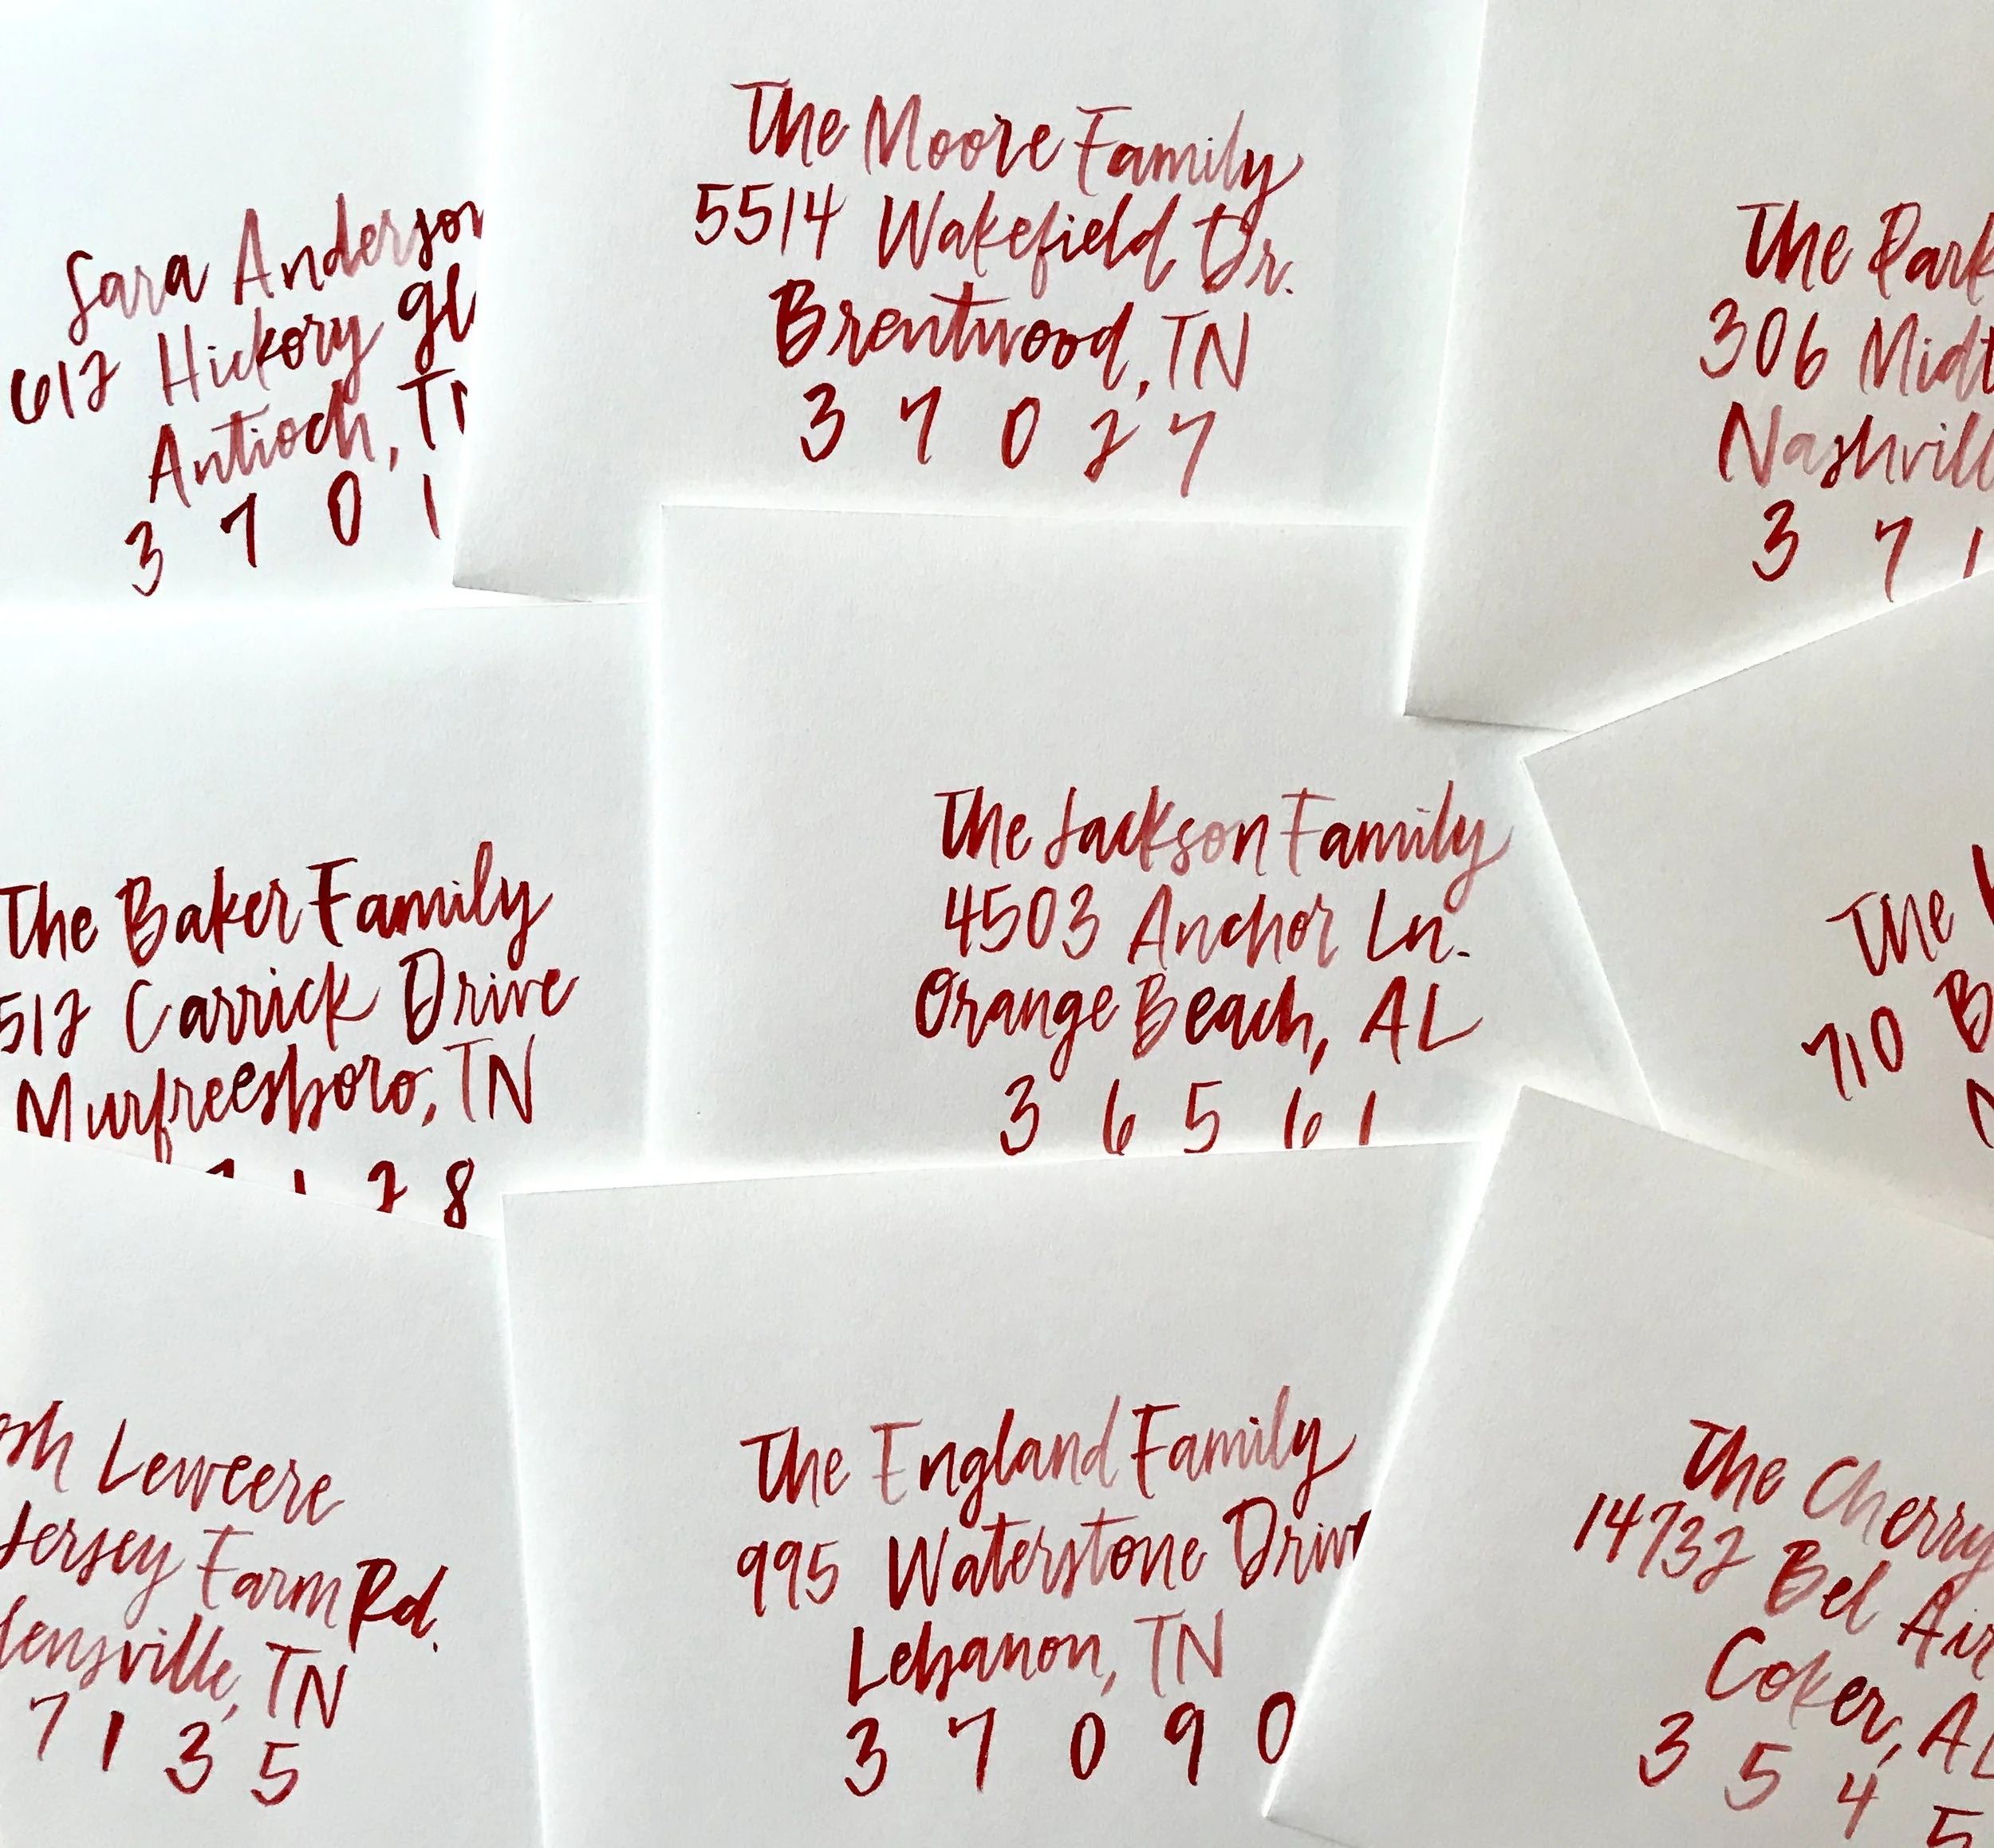 Sara Anderson
612 Hickory
Antioch,
3 7 0 1
The Moore Family
5514 Wakefield Dr.
Brentwood, TN
3 7 0 2 7
The
306
3 7 1
The Baker Family
512 Carrick Drive
Murfreesboro, TN
2 8
The Jackson Family
4503 Anchor Ln.
Orange Beach, AL
3 6 5 6 1
The
710
Leweere
Jersey Farm Rd.
TN
7 1 3 5
The England Family
995 Waterstone Drive
Lebanon, TN
3 7 0 9 0
The Cherry
14732 Bel Air
Coker, AL
3 5 4 5